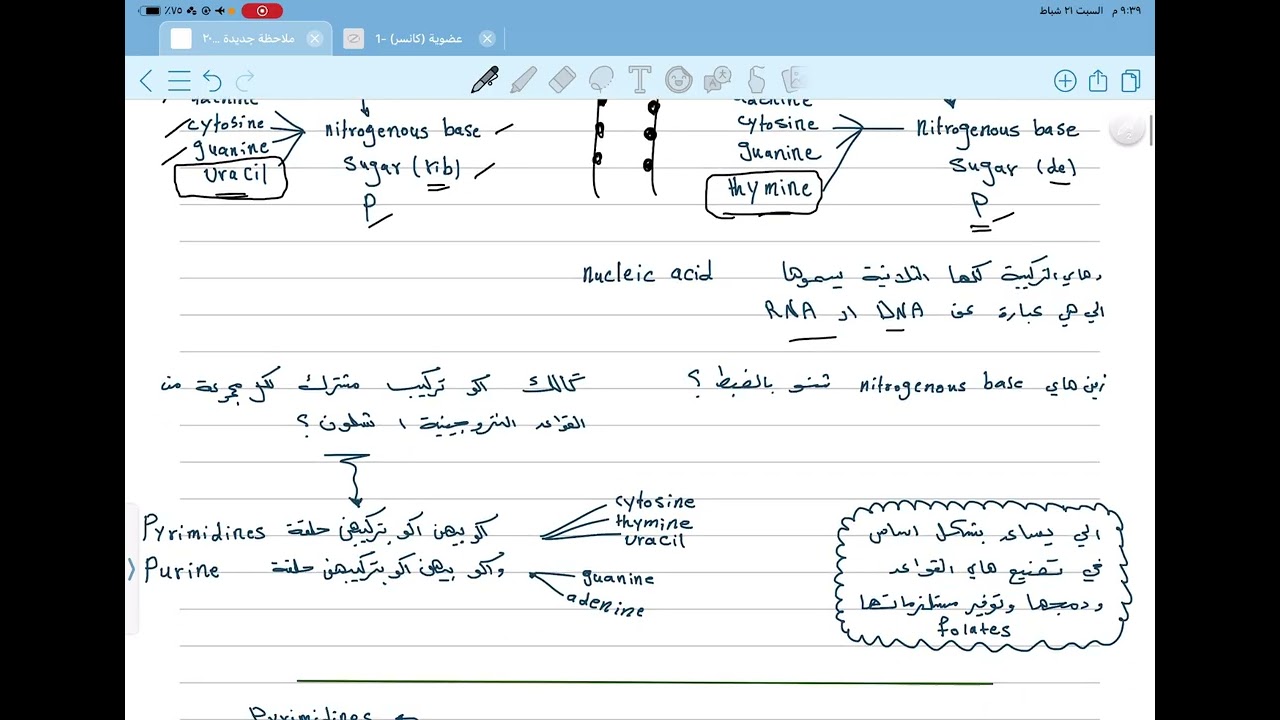 ٩:٣٩ م السبت ٢١ شباط
٪٧٥
ملاحظة جديدة ...٢٠
عضوية (كانسر) -1
cytosine
guanine
uracil
nitrogenous base
sugar (rib)
P
cytosine
guanine
thymine
Nitrogenous base
Sugar (de)
P
وهاي التركيبة كلها الثلاثية يسموها nucleic acid
الي هي عبارة عن DNA او RNA
زين هاي nitrogenous base شنو بالضبط ؟
كالك اكو تركيب مشترك لكل مجموعة من
القواعد النتروجينية ، شلون ؟
اكو بيهن اكو بتركيبهن حلقة Pyrimidines
cytosine
thymine
uracil
واكو بيهن اكو بتركيبهن حلقة Purine
guanine
adenine
الي يساعد بشكل اساس
في تصنيع هاي القواعد
ودمجها وتوفير مستلزماتها
folates
Pyrimidines